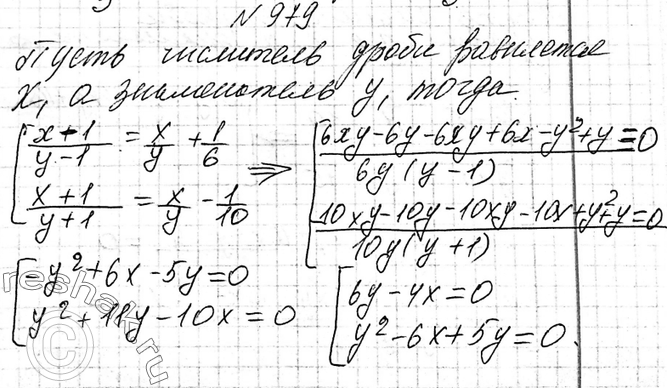 N979
Пусть числитель дроби равняется
x, а знаменатель y, тогда.
{ (x-1)/(y-1) = x/y + 1/6 => { (6xy-6y-6xy+6x-y²+y)/(6y(y-1)) = 0
{ (x+1)/(y+1) = x/y - 1/10 { (10xy-10y-10xy-10x+y²+y)/(10y(y+1)) = 0
{ -y²+6x-5y=0 { 6y-4x=0
{ y²+11y-10x=0 { y²-6x+5y=0.
reshak.ru
©